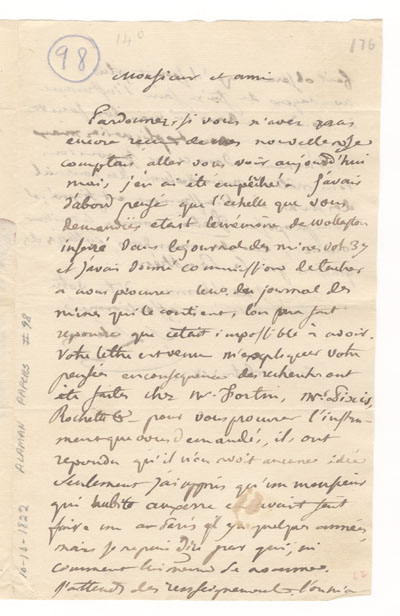 98
14°
176
Monsieur et ami
Pardonnez si vous n'avez pas
encore recu de mes nouvelles je
comptais aller vous voir aujourd'hui
mais j'en ai été empêché. J'avais
d'abord pensé que l'échelle que vous
demandiés etait le mémoire de Wollaston
inseré dans le journal des mines vol. 37
et j'avais donné commissions de
a vous procurer le No du journal des
mines qui le contient, l'on m'a fait
repondre que c'était impossible à avoir.
Votre lettre est venue m'expliquer votre
pensée en consequence des recherches ont
été faites chez Mr. Fortin, Mr.
Rochette &c pour vous procurer l'instru-
ment que vous demandés, ils ont
repondu qu'il n'en avoit aucune idée
seulement j'ai appris qu'un monsieur
qui habite auxerre avait fait
faire un il y a quelques années
mais je ne puis dire par qui, ni
comment le monsieur se nomme.
J'attends des renseignemens
10-16-1822 ALAMAN PAPERS # 98